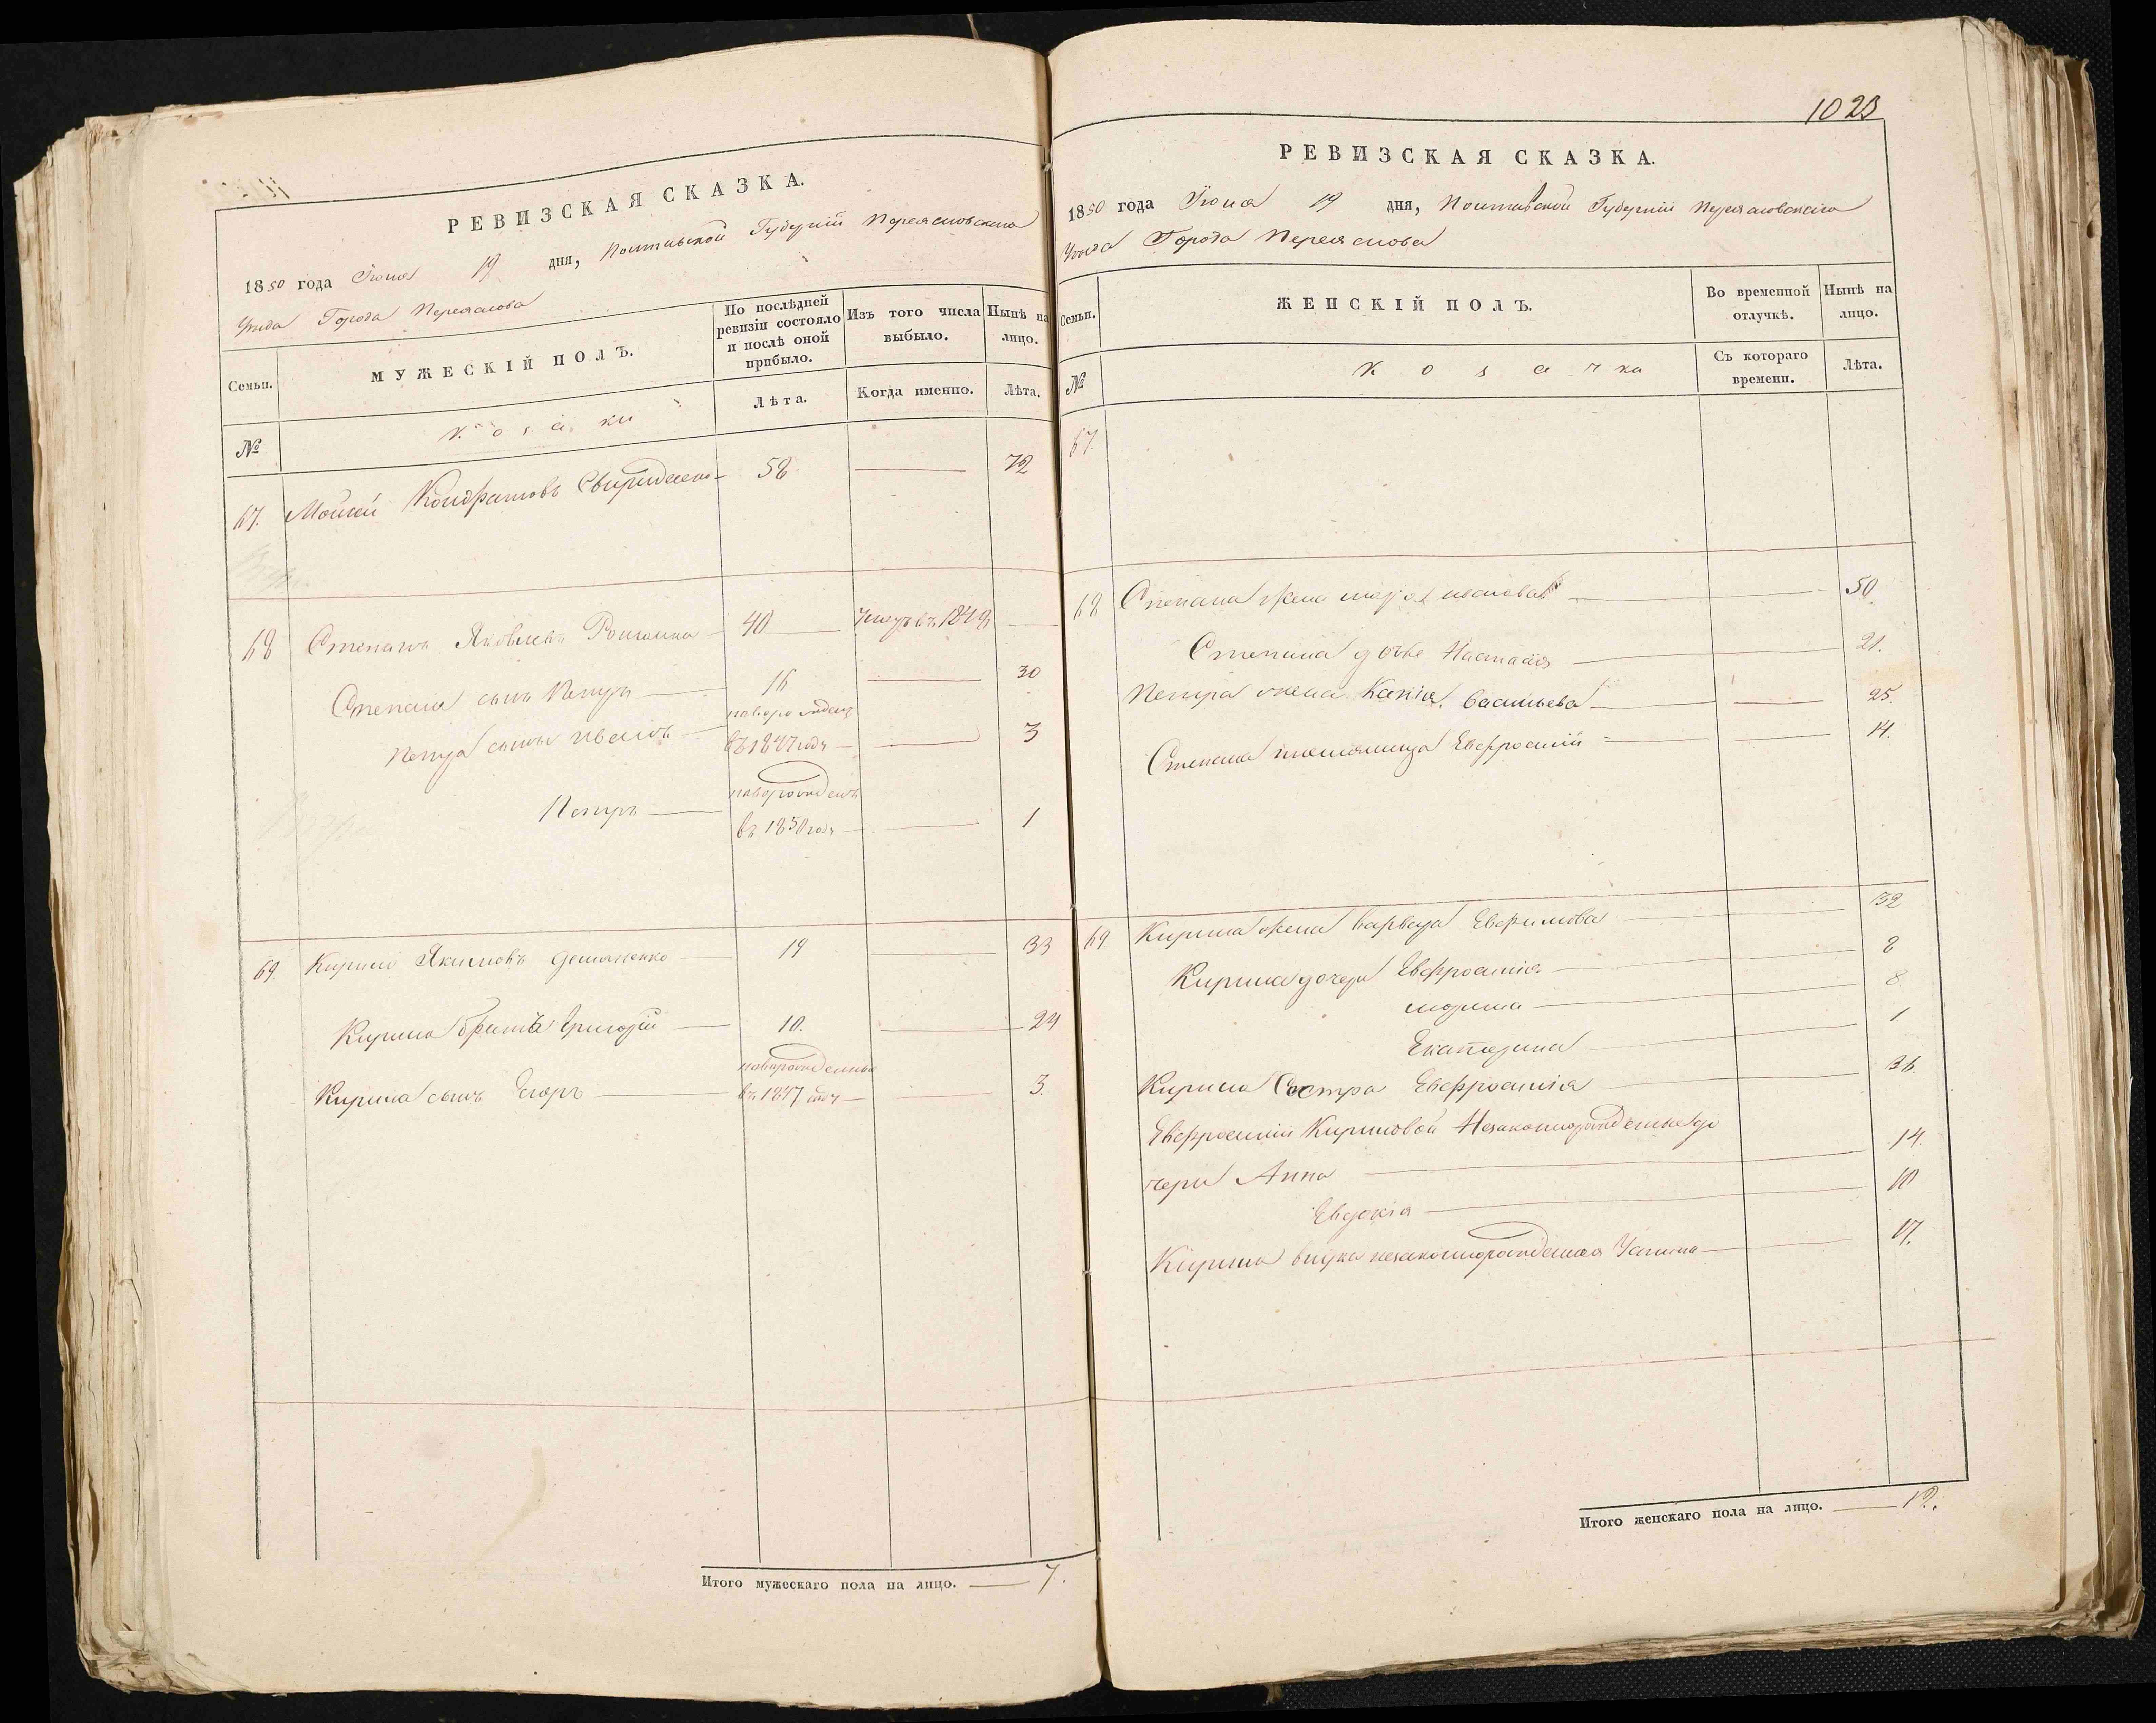 РЕВИЗСКАЯ СКАЗКА.
1850 года Іюня 19 дня, Полтавской Губерніи Переясловскаго
Уезда Города Переяслова
Семьи.
МУЖЕСКІЙ ПОЛЪ.
По послѣдней
ревизіи состояло
и послѣ оной
прибыло.
Изъ того числа
выбыло.
Нынѣ на
лицо.
№
Козаки
Лѣта.
Когда именно.
Лѣта.
67. Мойсей Кондратовъ Свириденко 58 72
68 Степанъ Яковлевъ 40 Умеръ въ 1848
Степана сынъ Петръ 16 30
Петра сынъ Иванъ новорожденъ
въ 1847 годѣ 3
Петръ новорожденъ
въ 1850 годѣ 1
69. Кирило Якимовъ Демяненко 19 33
Кирила братъ Григорій 10. 24
новорожденный
Кирила сынъ Егоръ въ 1847 годѣ 3.
Итого мужескаго пола на лицо. 7.
1023
РЕВИЗСКАЯ СКАЗКА.
1850 года Іюня 19 дня, Полтавской Губерніи Переясловскаго
Уезда Города Переяслова
Семьи.
ЖЕНСКІЙ ПОЛЪ.
Во временной
отлучкѣ.
Нынѣ на
лицо.
№
Козачки
Съ котораго
времени.
Лѣта.
67.
68 Степана жена Иванова 50
Степана дочь Настасія 21.
Петра жена Васильева 25.
Степана племяница Евфросинія 14.
69. Кирила жена Варвара Евфимова 32
Кирила дочери Евфросинія 8
Марина 8.
Екатерина 1
Кирила Сестра Евфросинія 36.
Евфросиніи Кириловой Незаконорожденные до
чери Анна 14.
Евдокія 10
Кирила внука незаконорожденная 17.
Итого женскаго пола на лицо. 12.